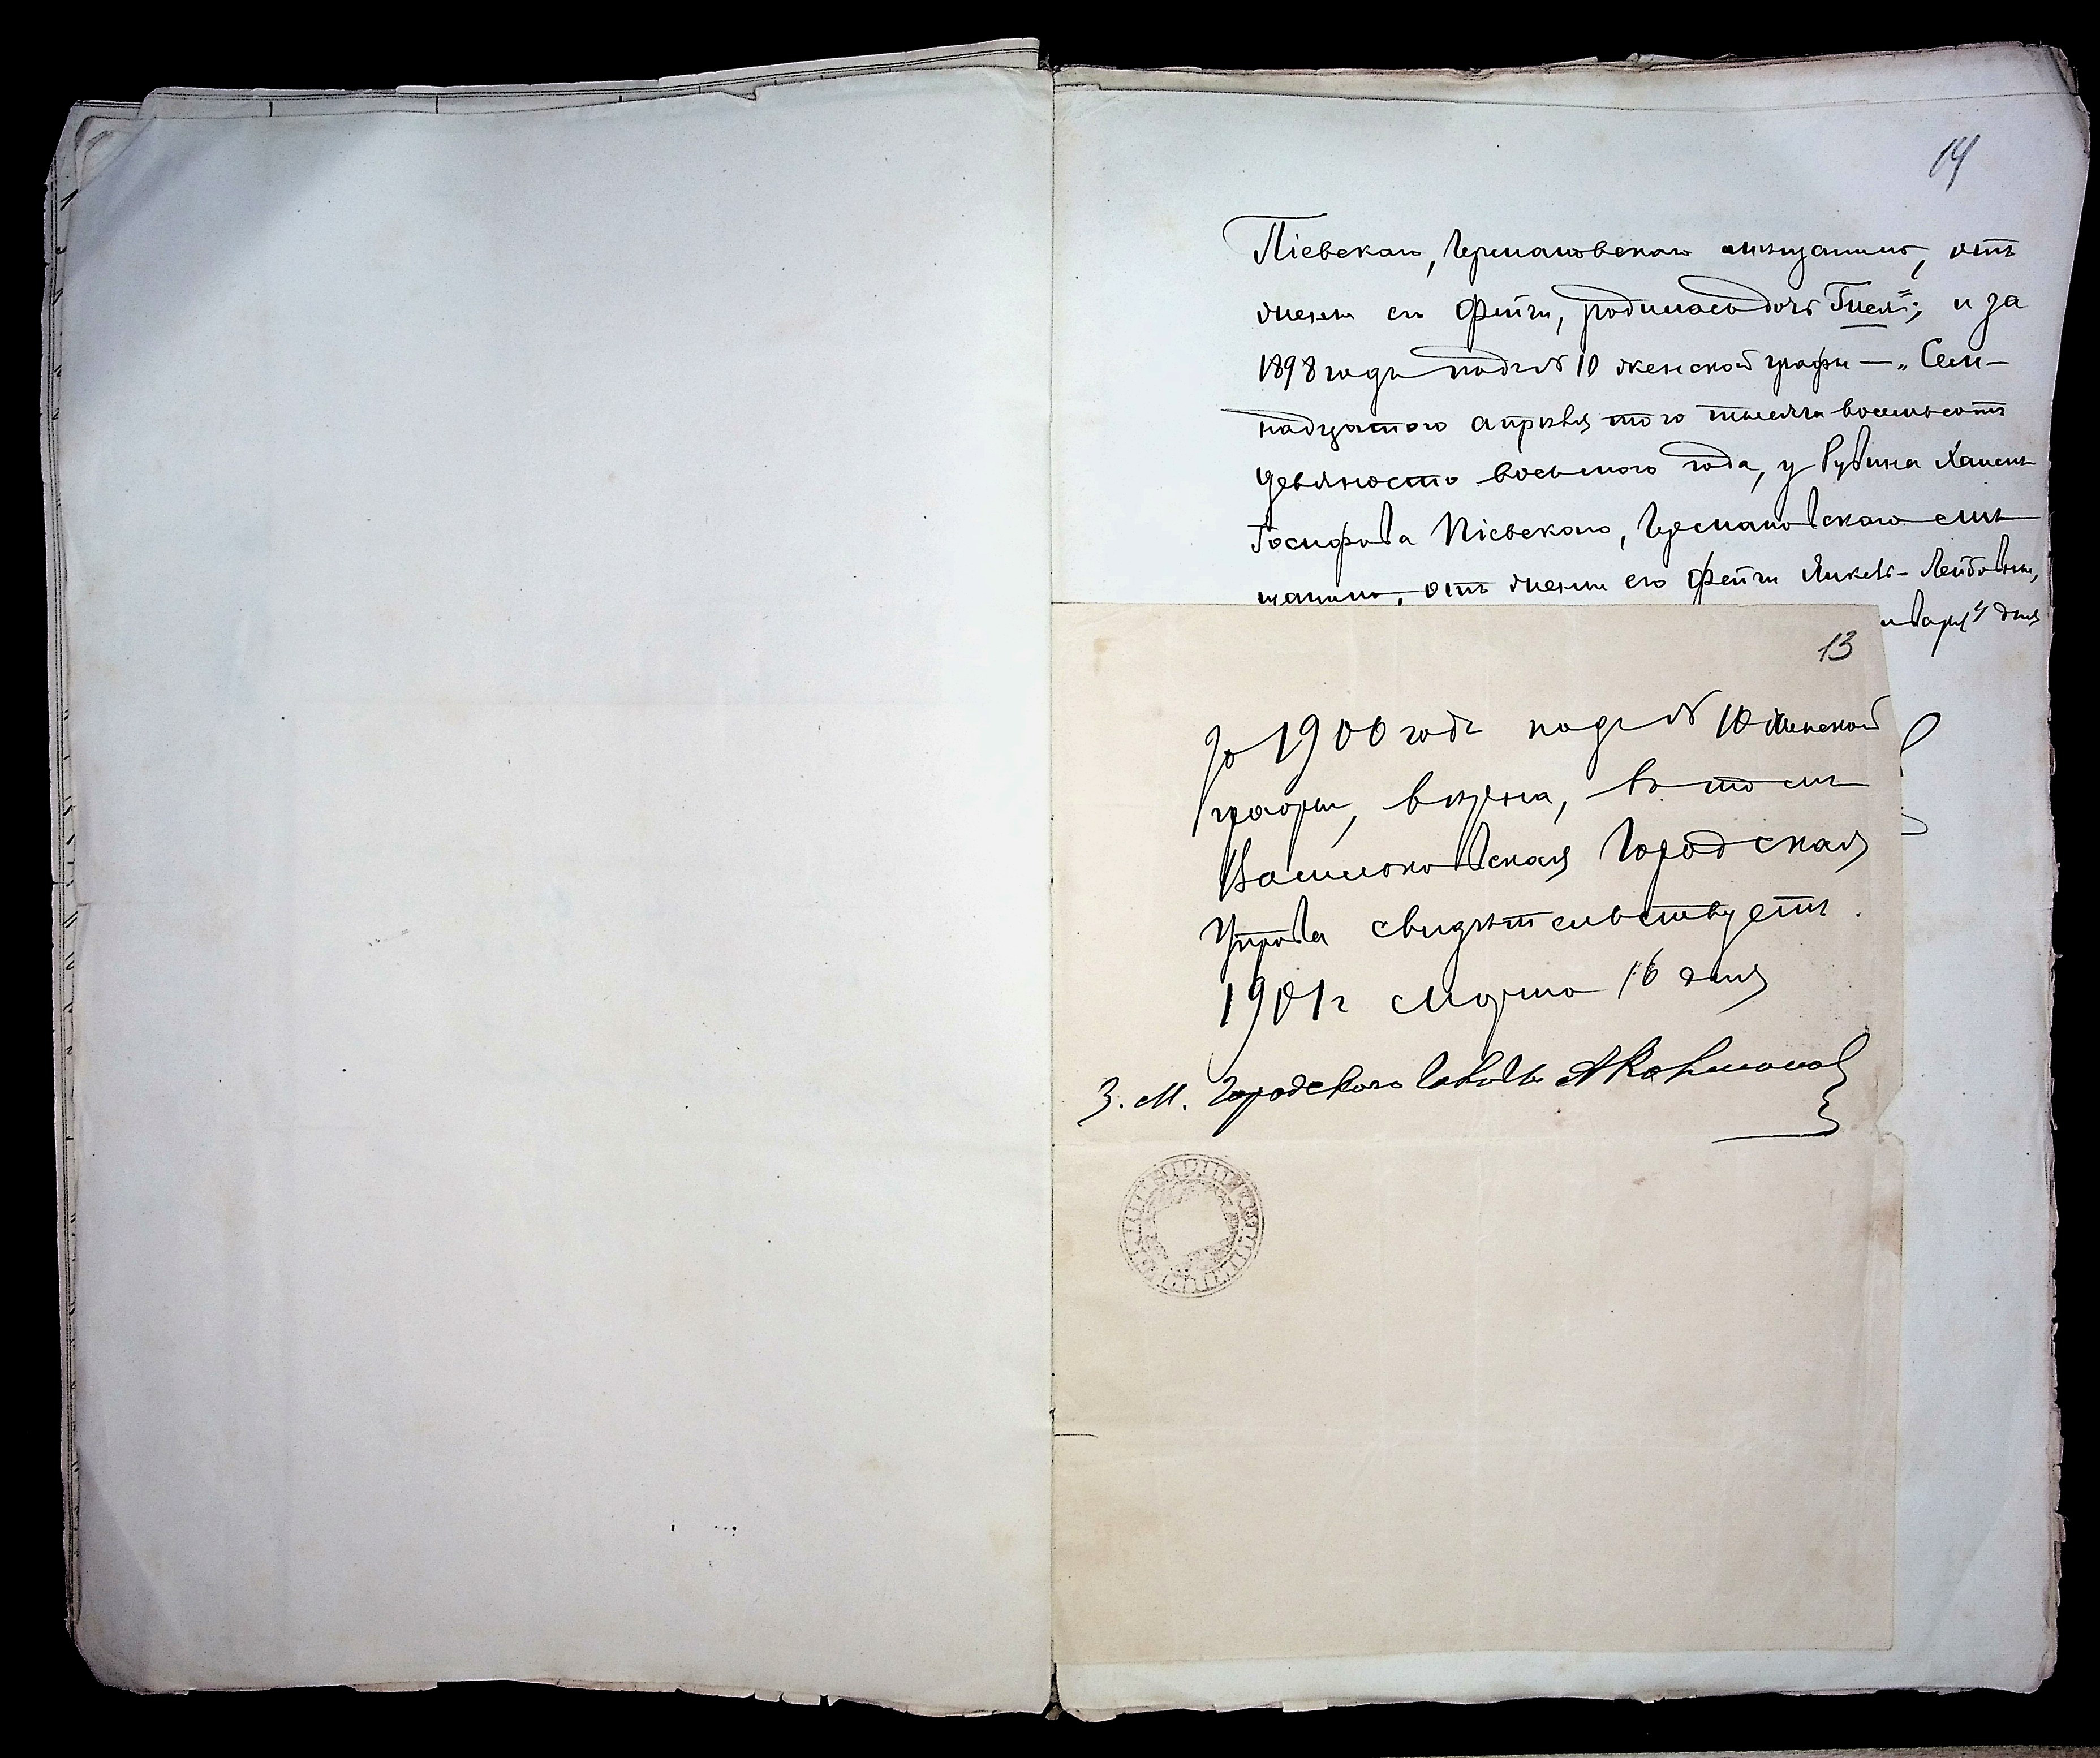 14
Піевскаго, Германовскаго мѣщанина, отъ
жены его Фейги, родилась дочь Гителя"; и за
1898 годъ подъ № 10 женской графы — „Сем-
надцатаго апрѣля того тысяча восемьсотъ
девяносто восьмого года, у Рувина Хаимъ
Іосифова Піевскаго, Германовскаго мѣ
щанина, отъ жены его Фейги Янкель-Лейбовны,
января 4 дня
13
За 1900 годъ подъ № 10 женской
графы, вѣрна, въ томъ
Васильковская Городская
Управа свидѣтельствуетъ.
1901 г Марта 16 дня
З. М. Городского Головы А